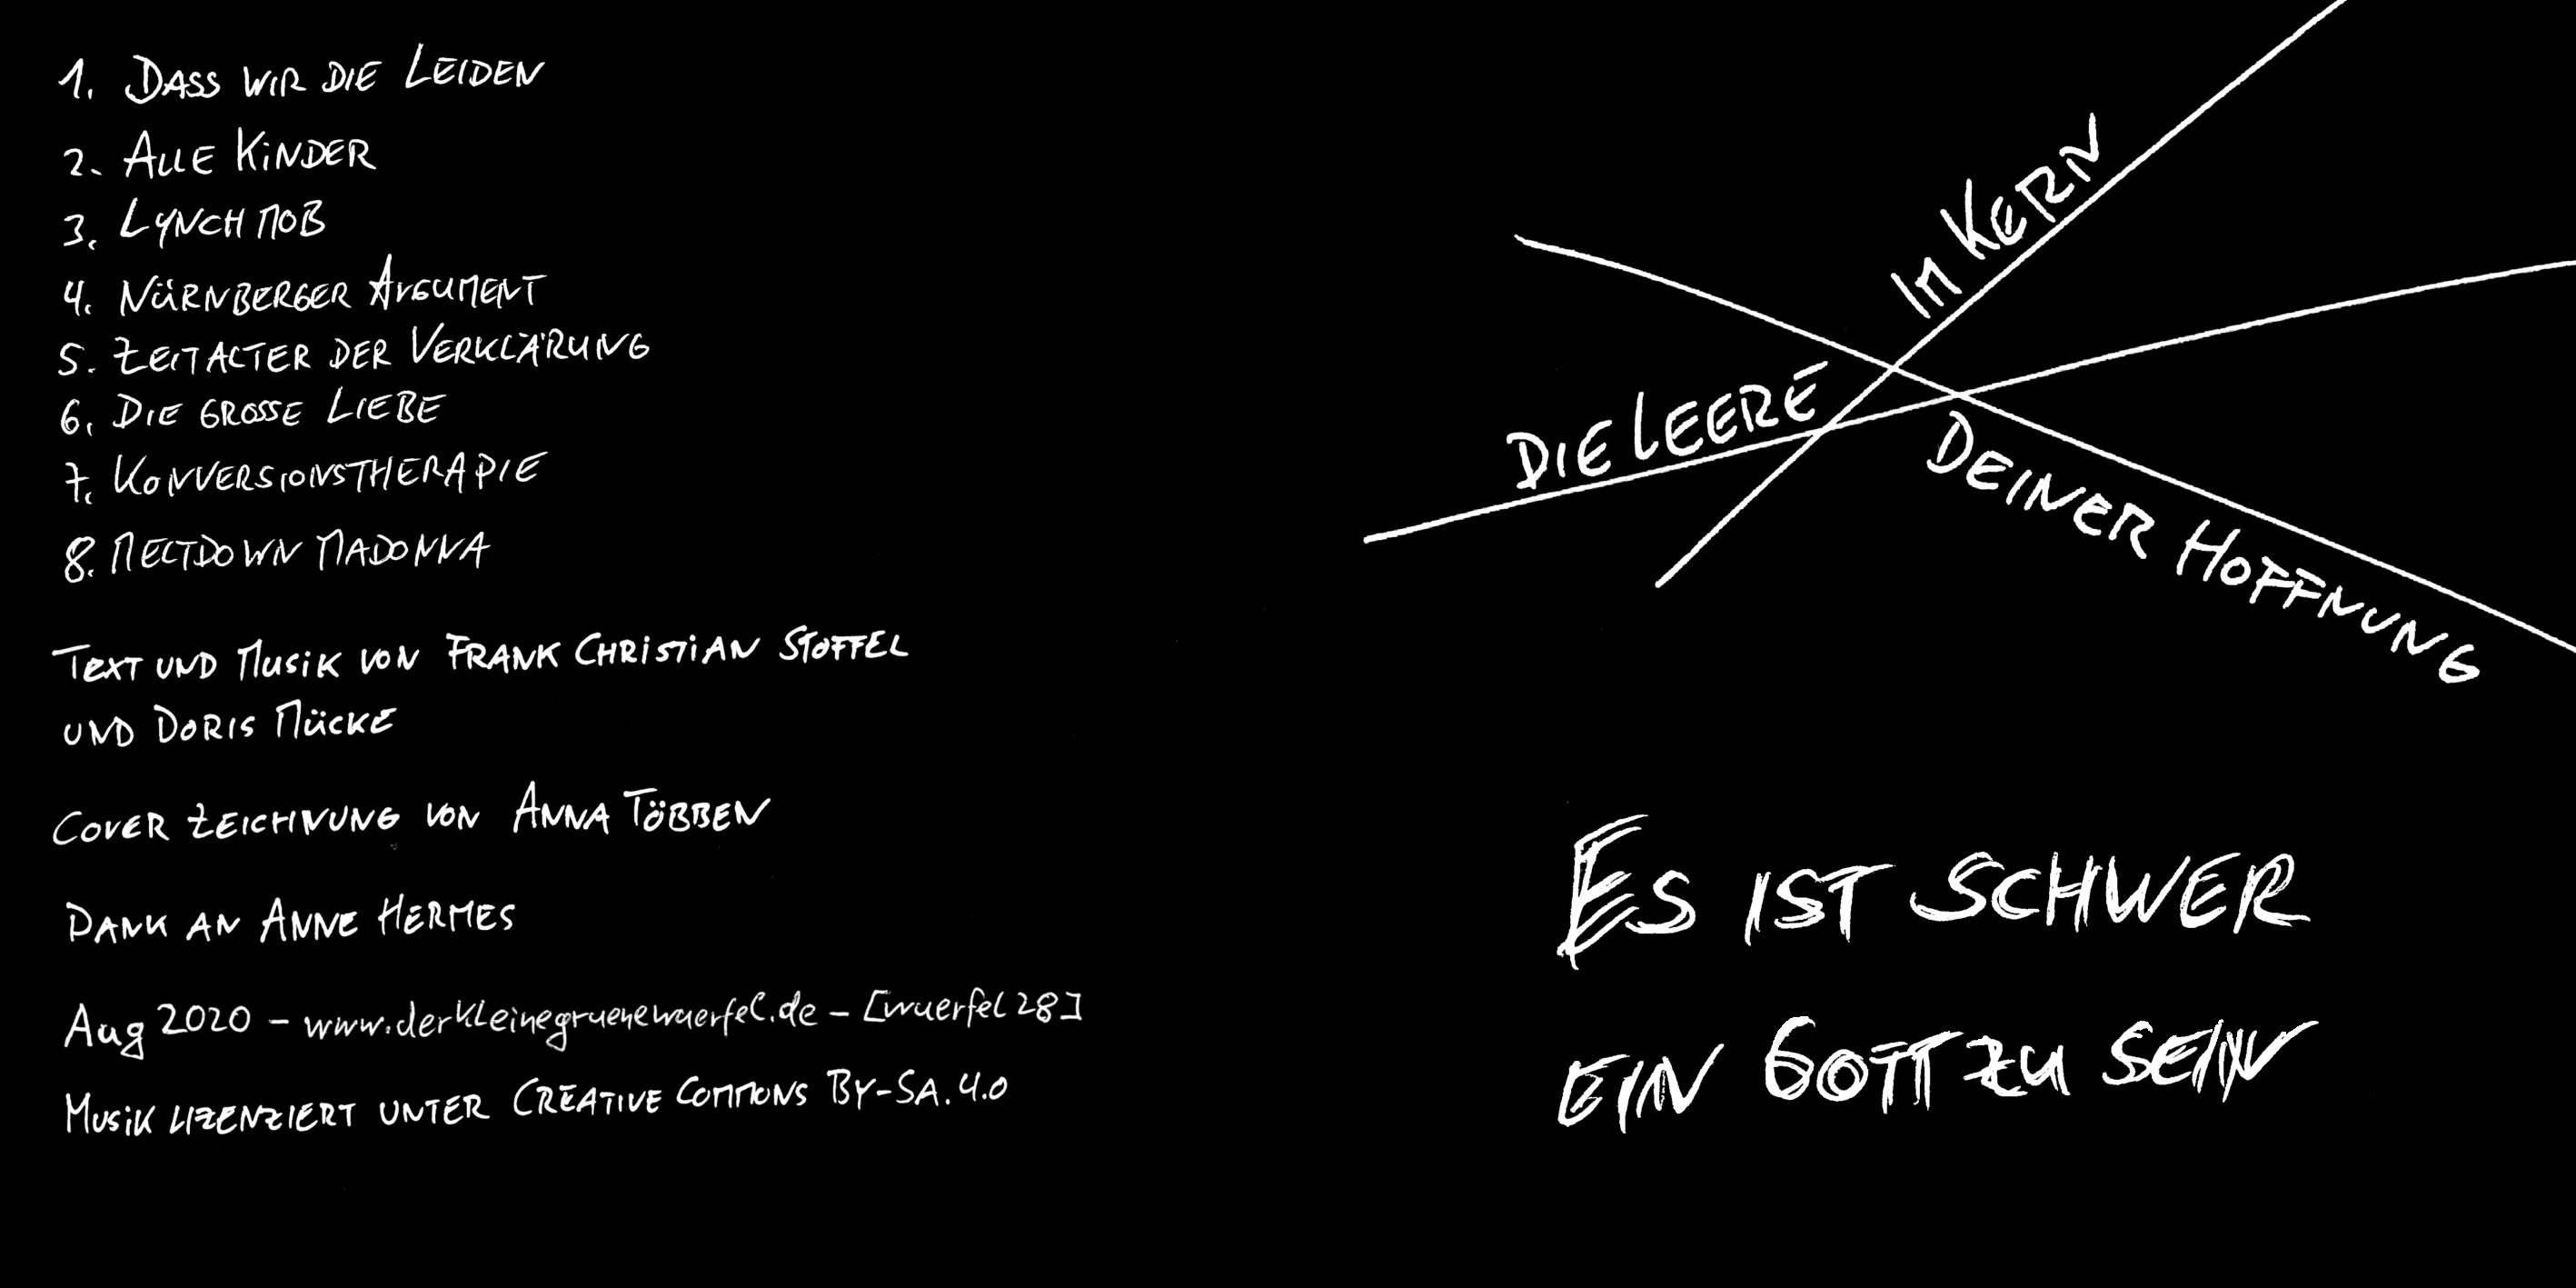 1. DASS WIR DIE LEIDEN
2. ALLE KINDER
3. LYNCHMOB
4. NÜRNBERGER ARGUMENT
5. ZEITALTER DER VERKLÄRUNG
6. DIE GROSSE LIEBE
7. KONVERSIONSTHERAPIE
8. MELTDOWN MADONNA
TEXT UND MUSIK VON FRANK CHRISTIAN STOFFEL
UND DORIS MÜCKE
COVER ZEICHNUNG VON ANNA TÖBBEN
DANK AN ANNE HERMES
Aug 2020 – www.derkleinegruenewuerfel.de – [wuerfel 28]
MUSIK LIZENZIERT UNTER CREATIVE COMMONS BY-SA.4.0
DIE LEERE
IM KERN
DEINER HOFFNUNG
ES IST SCHWER
EIN GOTT ZU SEIN